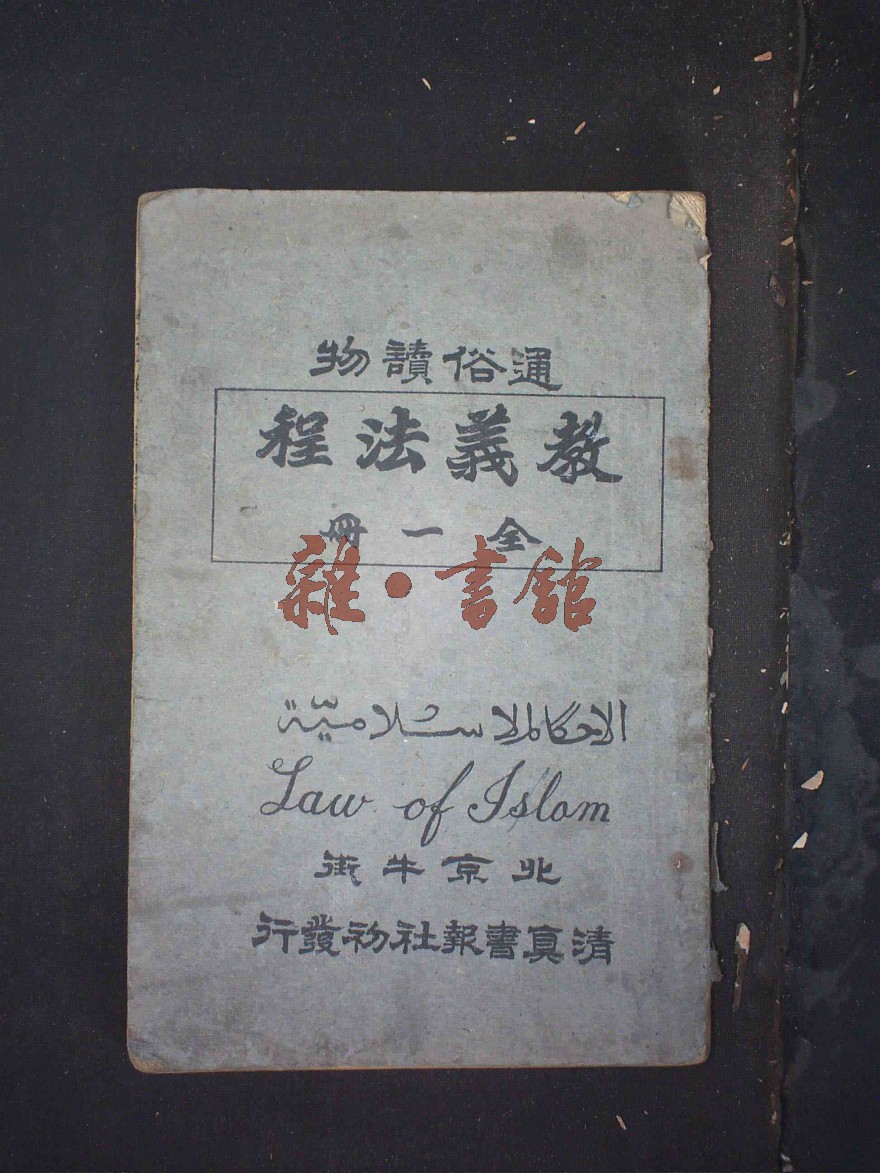 通俗讀物
教義法程
全一冊
雜·書館
الاحكام الاسلامية
Law of Islam
北京牛街
清真書報社初發行